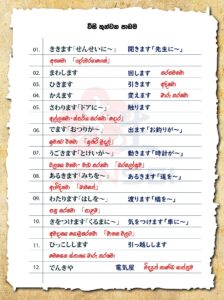 විසි තුන්වන පාඩම
01. ききます「せんせいに～」 聞きます「先生に～」
අහනවා 「ගුරුවරයාගෙන්」
02. まわします 回します කරකවනවා
03. ひきます 引きます අදිනවා
04. かえます 変えます මාරු කරනවා
05. さわります「ドアに」 触ります
අල්ලනවා
06. でます「おつりが～」 出ます「お釣りが～」
07. うごきます「とけいが～」 動きます「時計が～」
08. あるきます「みちを～」 歩きます「道を～」
ඇවිදිනවා 「පාරේ」
09. わたります「はしを～」 渡ります「橋を～」
පාරු කරනවා 「පාලම」
10. きをつけます「くるまに～」 気をつけます「車に～」
11. ひっこしします 引っ越しします
12. でんきや 電気屋